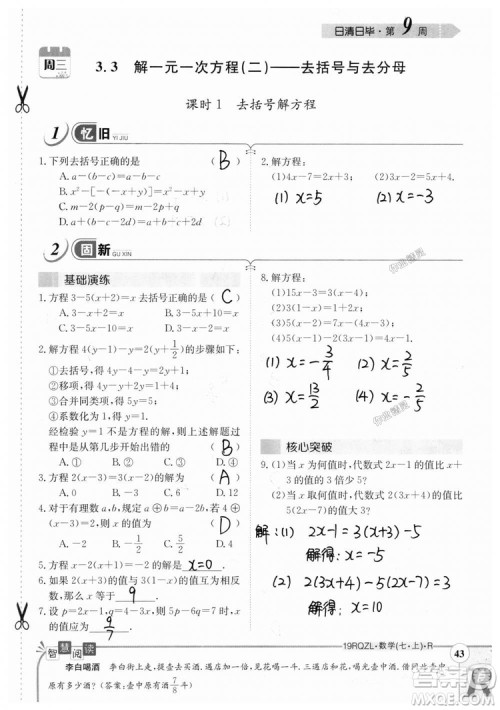 日清日毕·第9周
周三
3.3 解一元一次方程(二)——去括号与去分母
课时1 去括号解方程
1 忆旧 YI JIU
1.下列去括号正确的是 ( B )
A.a-(b-c)=a-b-c
B.x²-[-(-x+y)]=x²-x+y
C.m-2(p-q)=m-2p+q
D.a+(b-c-2d)=a+b-c+2d
2.解方程:
(1)4x-7=2x+3; (2)3x-6=5x+4.
(1) x=5 (2) x=-3
2 固新 GU XIN
基础演练
1.方程3-5(x+2)=x去括号正确的是( C )
A.3-x+2=x B.3-5x+10=x
C.3-5x-10=x D.3-x-2=x
2.解方程4(y-1)-y=2(y+1/2)的步骤如下:
①去括号,得4y-4-y=2y+1
②移项,得4y+y-2y=1+4
③合并同类项,得3y=5
④系数化为1,得y=5/3
经检验y=5/3不是方程的解,则上述解题的过程中是从第几步开始出错的 ( B )
A.① B.② C.③ D.④
3.方程2(x-3)=3(x-2)的解为 ( A )
A.0 B.1 C.2 D.4
4.对于有理数a,b,规定a⊕b=a+2b,若4⊕
(x-3)=2,则x的值为 ( D )
A.-2 B.-1/2 C.1/2 D.2
5.方程x-2(x-3)=6的解是 x=0 .
6.如果2(x+3)的值与3(1-x)的值互为相反数,那么x的值为
7.设P=2(x+2),Q=3(x-2),且P=Q,则x的值应为
8.解方程:
(1)15x-3=3(x-4);
(1) x=-3/4 (2) x=-2/5
(3) x=13/2 (4) x=-2/5
核心突破
9.(1)当x何值时,代数式2x-1的值比x+3的值的3倍少5?
(2)当x取何值时,代数式2(3x+4)的值比5(2x-7)的值大3?
解:(1) 2x-1=3(x+3)-5
解得:x=-5
(2) 2(3x+4)-5(2x-7)=3
解得:x=10
智慧阅读
李白喝酒 李白街上走,提壶去买酒。遇店加一倍,见花喝一斗。三遇店和花,喝光壶中酒。借问壶中原有多少酒?(答案:壶中原有7/8斗)
19RQZL·数学(七·上)·R
43